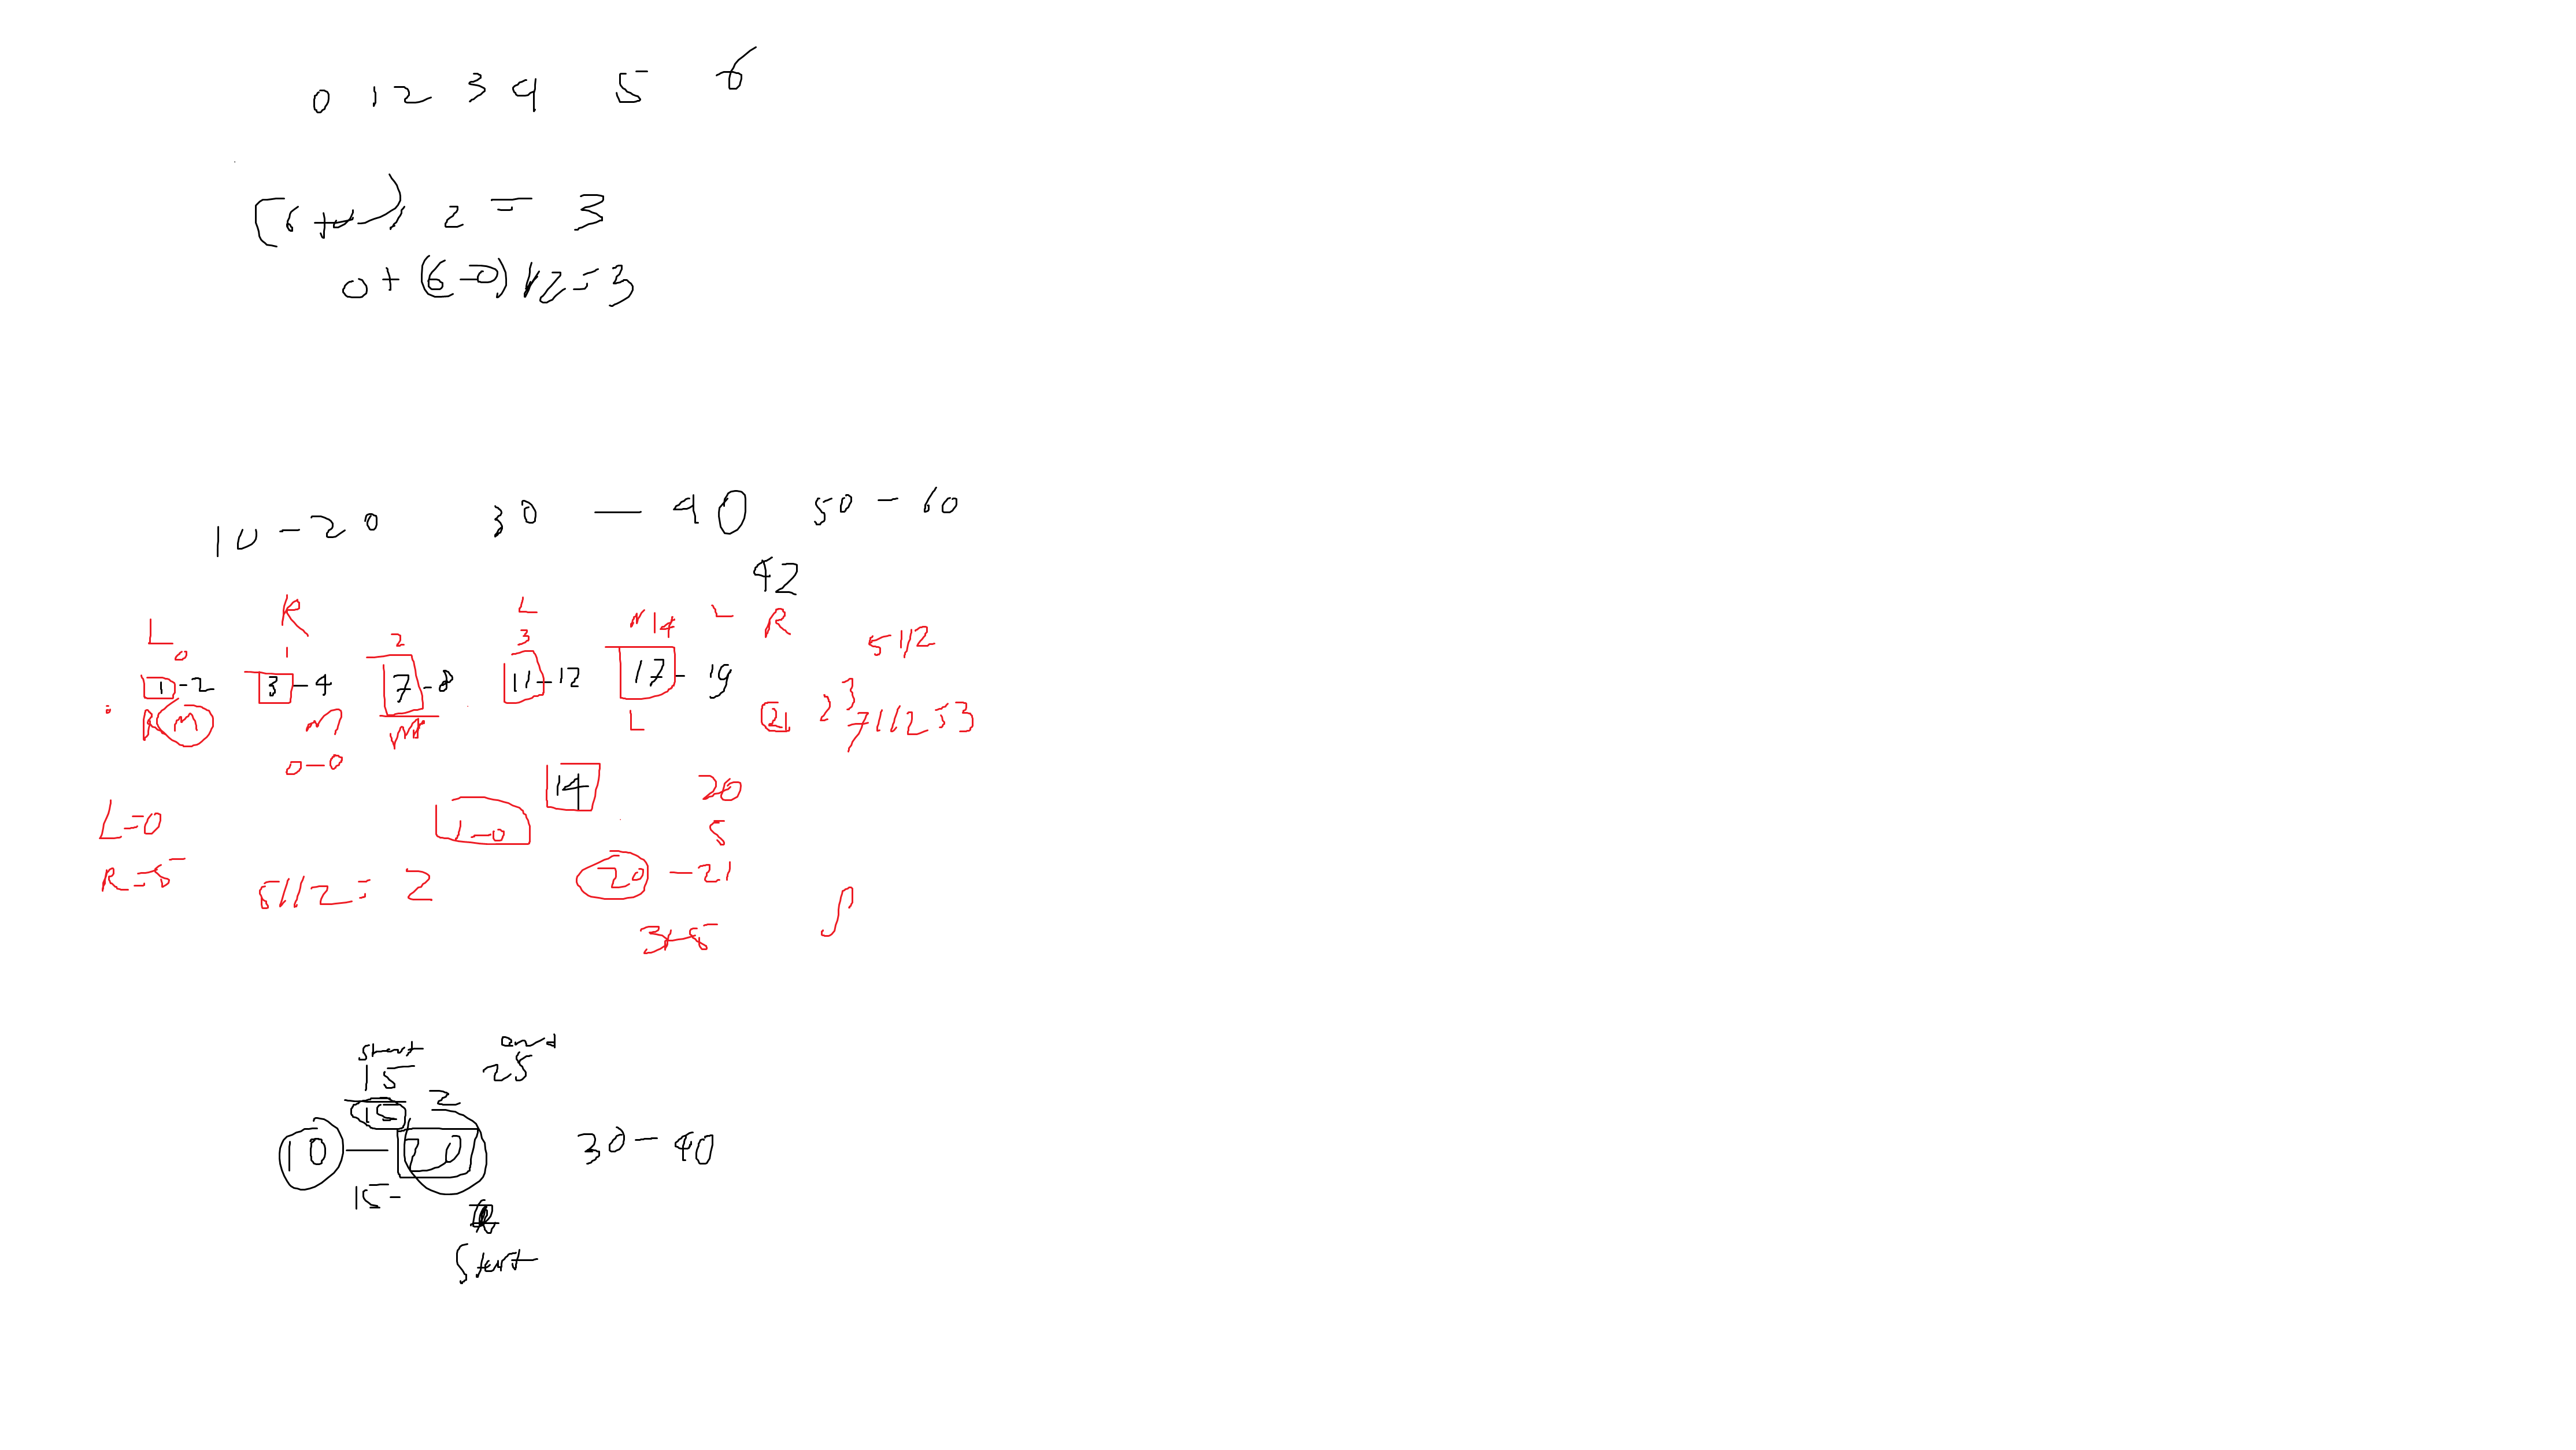 0 1 2 3 4 5 6
(6+0)/2 = 3
0 + (6-0)//2 = 3
10 - 20 30 — 40 50 - 60
42
L R L M L R
0 1 2 3 4 5//2
1-2 3-4 7-8 11-12 17-19
R M M M L 21 23 7//2=3
0-0
14 20
L=0 1-0 5
R=5 5//2= 2 20 - 21
3+5
start end
15 25
15 2
10 — 20 30 - 40
15-
start